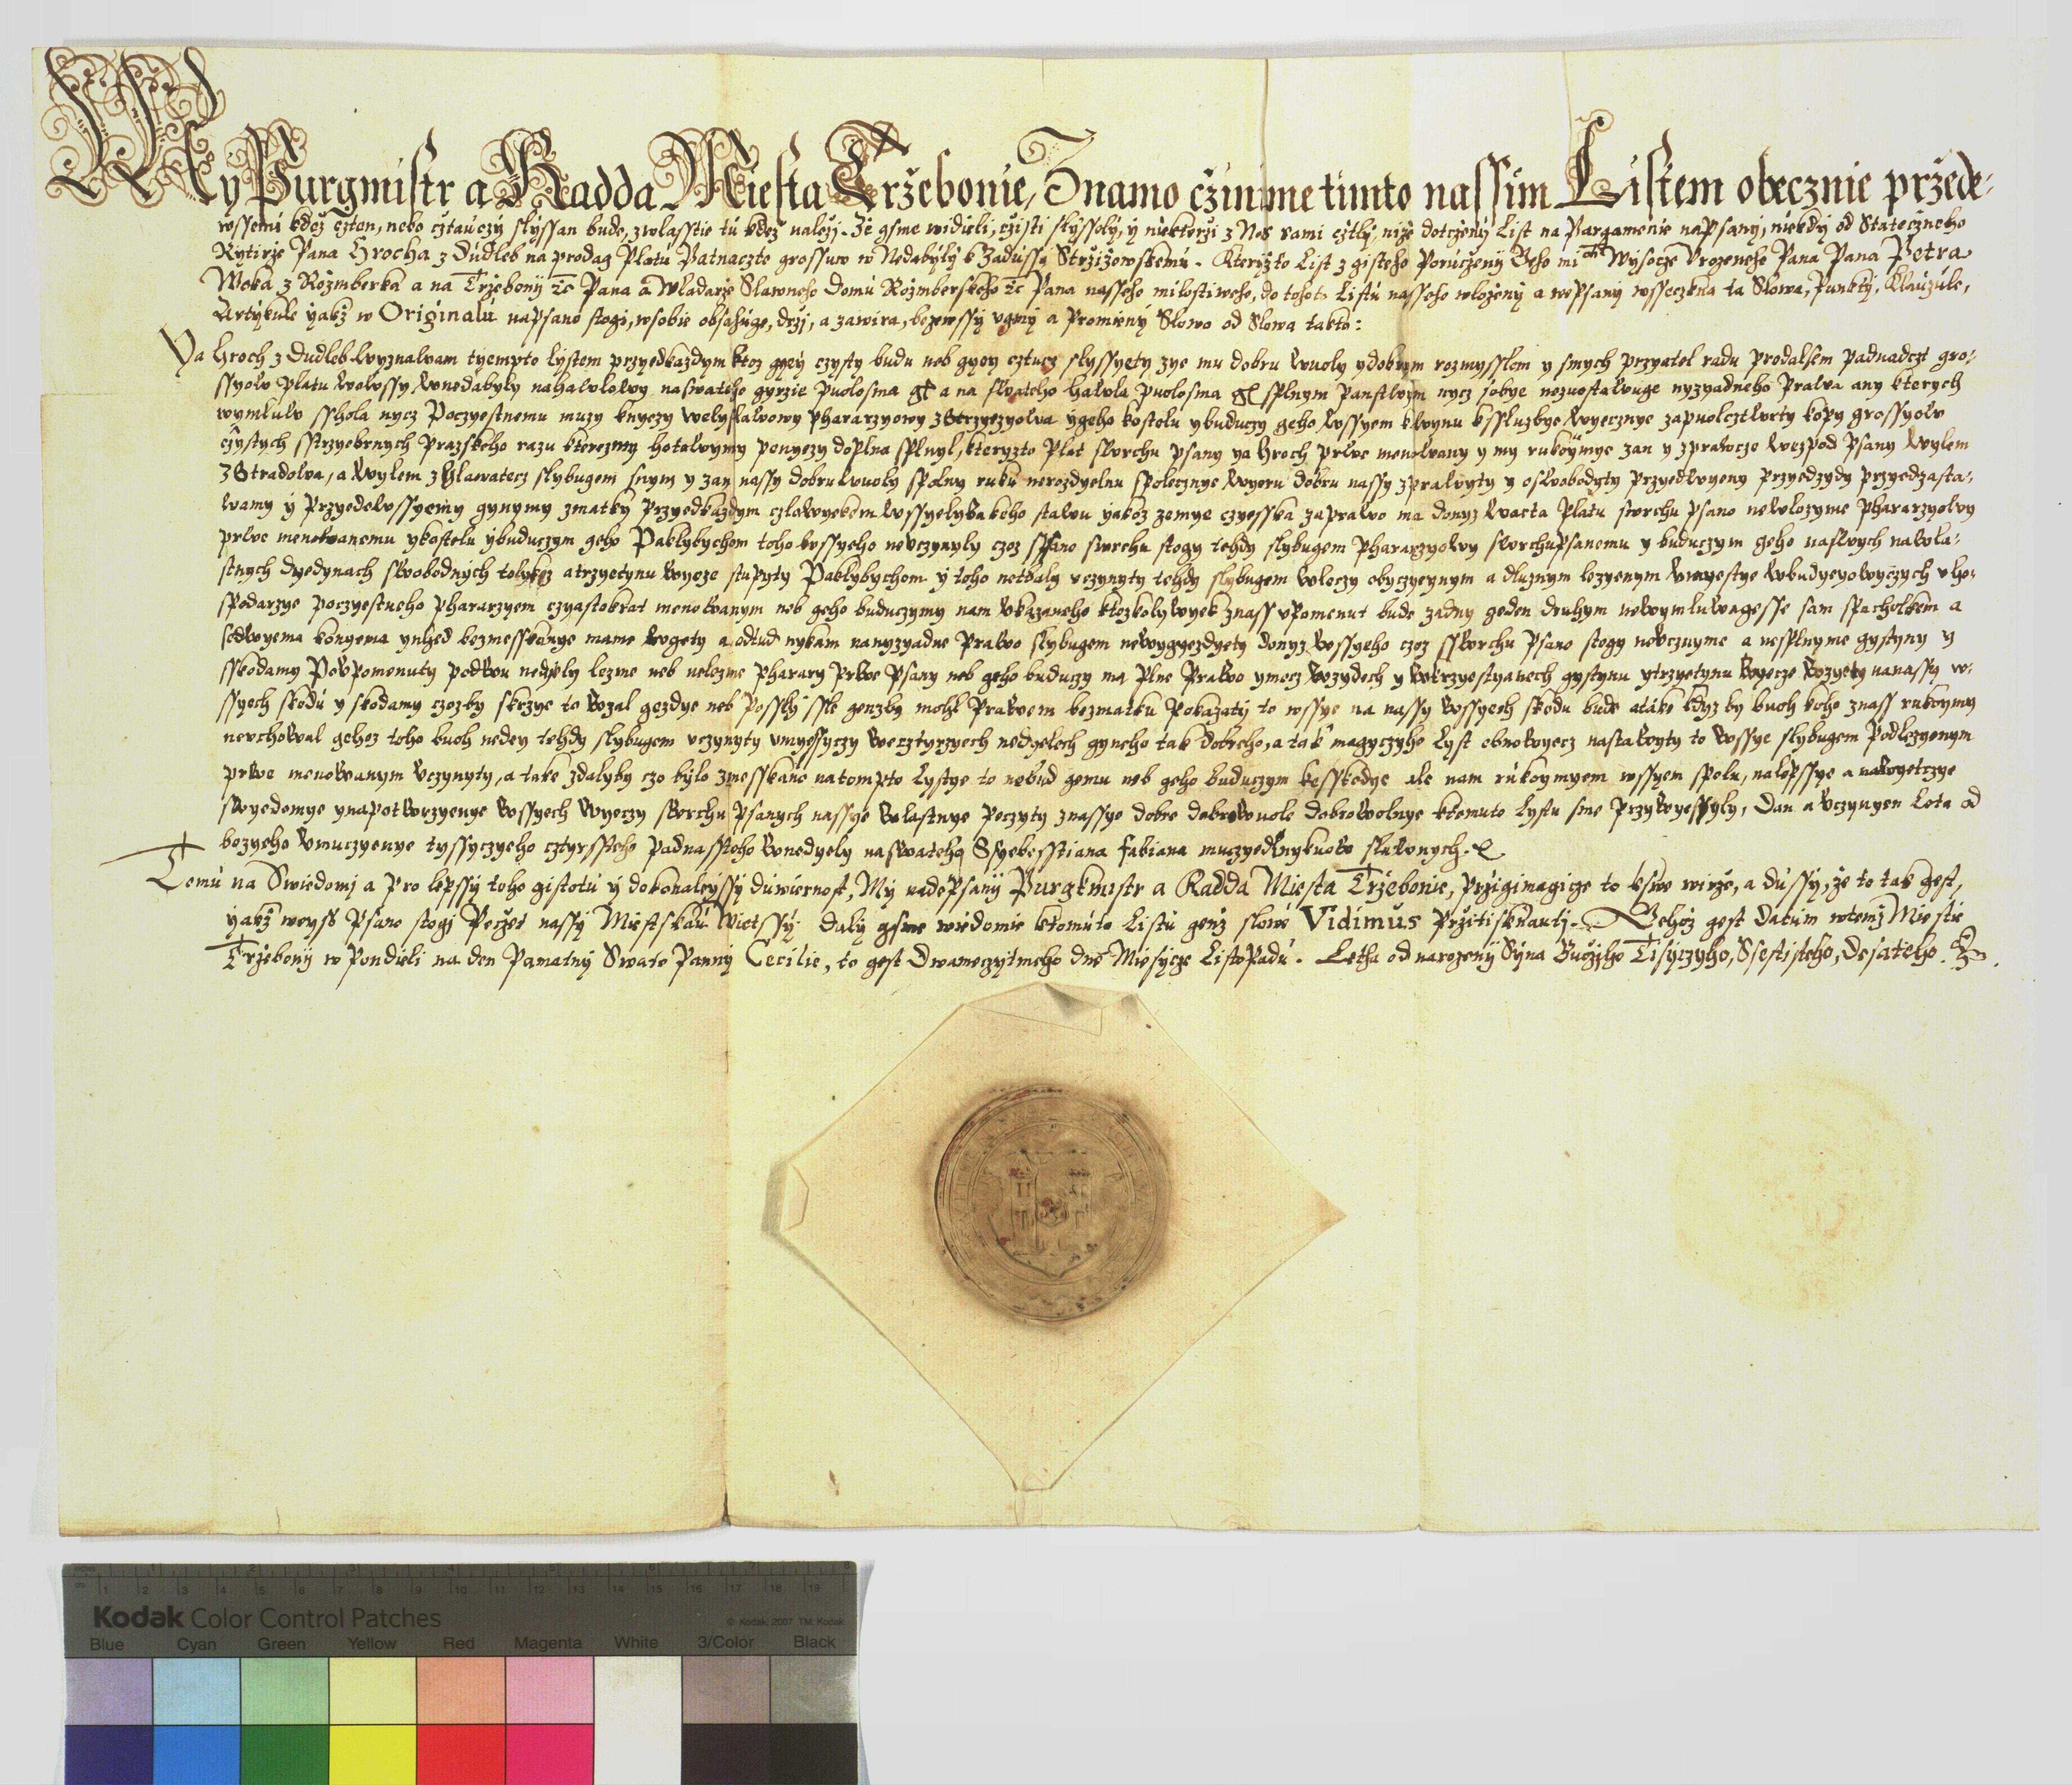 My Purgmistr a Radda Miesta Tržebonie, Znamo čžinime timto nassim Listem obecznie pržede-
wssemi kdež čzten, nebo cžtauczy slyssan bude, zwlasstie tu kdež naležj. Že gsme widieli, čžisti slyssely, y niekteržj z Nas sami cžtly, niže dotčzeny List na Pargamenie napsany, niekdy od Statečzneho
Rytirže Pana Hrocha z Dudleb na prodag Platu Patnaczte grossuw w Nedabyly k Zadussy Stržižowskemu. Kteryžto List z gisteho Poručženy Geho mi^ti Wysocze Vrozeneho Pana Pana Petra
Woka z Rožmberka a na Tržebony ꝛc Pana a Wladarže Slawneho Domu Rožmberskeho ꝛc Pana nasseho milostiweho, do tohoto Listu nasseho wloženy a wepsany wsseczkna ta Slowa, Punkty, Klauzule,
Artykule yakž w Originalu napsano stogi, w sobie obsahuge, držj, a zawira, bezewssy vgmy a Promieny Slowo od Slowa takto:
Ya Hroch z Dudleb wyznalvam tyempto lystem przyedkazdym ktoz gyey czysty budu neb gyey cztucz slyssyety zye mu dobru wuoly ydobrym rozmysslem y smych przyatel radu prodalsem padnadczt gro-
ssyow platu wewssy wnedabyly nahawlowy naswateho gyrzie puolosma gꝉ a na swateho hawla puolosma gꝉ splnym panstwym nycz sobye nezuostawuge nyzyadneho prawa any kterych
wymluw sshola nycz Poczyestnemu muzy knyezy welyslawowy pharárzyowy zStrzyezyowa ygeho kostelu ybuduczy geho wssyem kwynu kssluzbye wyecznye zapuolcztwrty kopy grossyow
czystych strzyebrnych prazskeho razu kterezmy hotowymy penyezy doplna splnyl, kteryzto plat swrchu psany ya Hroch prwe menowany y my rukoymye zan y zprawcze wezpod psany wylem
zStradowa, a wylem zHlawatecz slybugem snym y zan nassy dobru wuoly spolny ruku nerozdyelnu spolecznye wyeru dobru nassy zprawyty y oswobodyty przyedwyeny przyedzydy przyedzasta-
wamy y przyedewssyemy gynymy zmatky przyedkazdym czlowyekem wssyelykakeho stawu yakoz zemye czyesska zaprawo ma donyz wacta platu swrchu psano newlozyme pharárzyowy
prwe menowanemu ykostelu ybuduczym geho Paklybychom toho wssyeho neuczynyly czoz psano swrchu stogy tehdy slybugem pharárzyowy swrchupsanemu y buduczym geho naswych nawla-
stnych dyedynach swobodnych tolykez atrzyetynu wyeze stupyty Paklybychom y toho netbaly vczynyty tehdy slybugem wleczy obyczyeynym a dluznym lezyenym wmyestye wbudyeyowyczych vho-
spodarzye poczyestneho pharárzyem czyastokrat menowanym neb geho buduczymy nam vkazaneho ktozkolywyek znass vpomenut bude zadny geden druhym newymluwagesse sam spacholkem a
sedwyema konyema ynhed bezmesskanye mame wgety a odtud nykam nanyzyadne prawo slybugem newygyezdyety donyz wssyeho czoz sswrchu psano stogy neuczynyme a nesplnyme gystyny y
sskodamy Powpomenuty podwu nedyely lezme neb nelezme pharary prwe psany neb geho buduczy ma plne prawo ymocz wzydech y wkrzyestyanech gystynu ytrzyetynu wyecze wzyety nanassy w-
ssyech skodu y skodamy czozby skrzye to wzal gezdye neb posselsle genzby mohl prawem bezmatku pokazaty to wssye na nassy wssyech skodu bude atake kdyz by buoh koho znass rukoymy
neuchowal gehoz toho buoh nedey tehdy slybugem vczynyty vmyessyczy wecztyrzyech nedyelech gyneho tak dobreho, a tak magyczyho lyst obnowyecz nastawyty to wssye slybugem podlezyenym
prwe menowanym vczynyty, a take zdalyby czo bylo zmesskano natompto lystye to nebud gemu neb geho buduczym kesskodye ale nam rukoymyem wssyem spolu, nalepssye a nawyetczye
swyedomye ynapotwrzyenye wssyech wyeczy swrchu psanych nassye wlastnye peczyty znassye dobre dobrowuole dobrowolnye ktomuto lystu sme przywyessyly, Dan a vczynyen Lota od
bozyeho vmuczyenye tyssyczyeho cztyrssteho padnassteho wnedyely naswateho Ssyebesstiana fabiana muczyedlnykuow slawnych.
Tomu na Swiedomj a Pro lepssy toho gistotu y dokonaleyssy duwiernost, My nadepsany Purgkmistr a Radda Miesta Tržebonie, pržigimagicze to k swe wirže, a dussy, že to tak gest,
yakž weyss Psano stogj Pečžet nassy Miestskau Wietssy daly gsme wiedomie ktomuto Listu genž slowe Vidimus Pržitisknauti. Gehož gest Datum wtemž Miestie
Tržebony w Pondieli na den Pamatny Swate Panny Cecilie, to gest Dwamezytmeho dne Miesycze Listopadu. Letha od narozeny Syna Božjho Tisyczyho, Ssestisteho, Desateho.
Kodak Color Control Patches
© Kodak, 2007 TM: Kodak
Blue Cyan Green Yellow Red Magenta White 3/Color Black